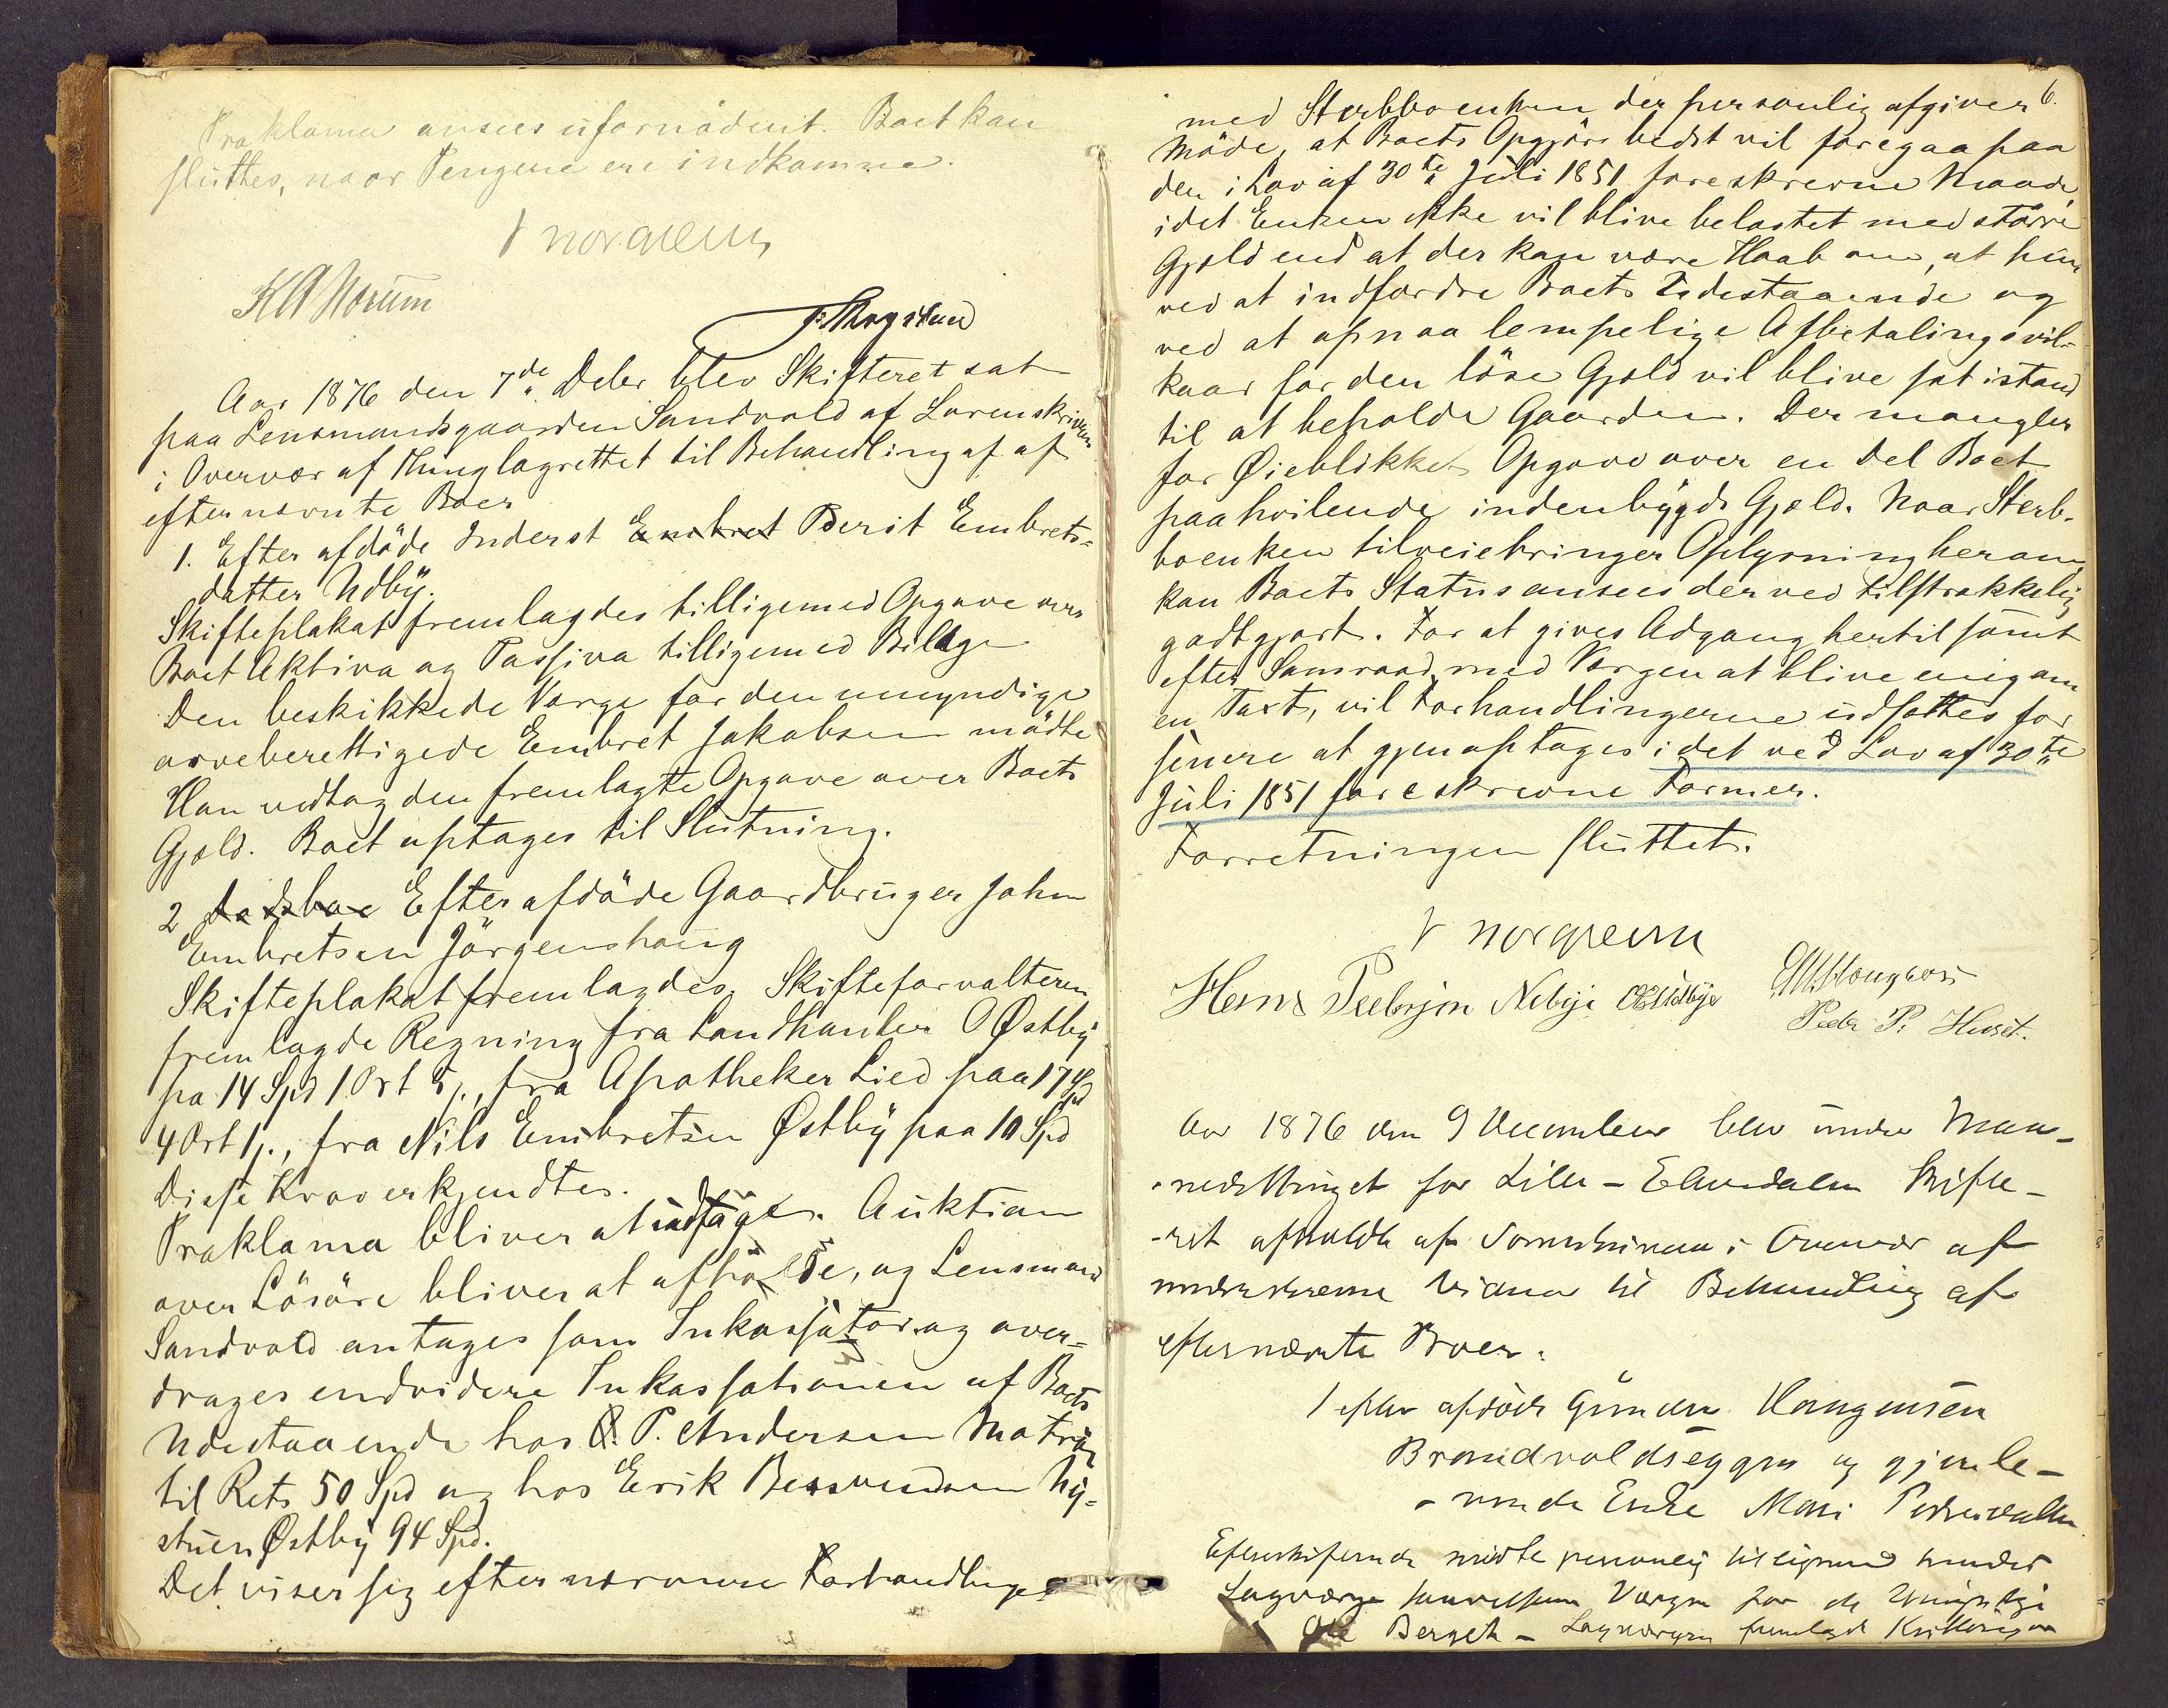 Proklama ansees ufornødent. Boet kan
sluttes, naar Pengene ere indkomne.
Norgrenn
K A Norum
Aar 1876 den 7de Deber blev Skifteret sat
paa Lensmandsgaarden Sandvold af Sorenskriveren
i Overvær af Thinglagrettet til Behandling af af
efternævnte Boer
1. Efter afdöde Inderst Embret Berit Embrets=
datter Udbÿ.
Skifteplakat fremlagdes tilligemed Opgave over
Boet Aktiva og Passiva tilligemed Bilage
Den beskikkede Værge for den umyndige
arveberettigede Embret Jakobsen mödte
Han vedtog den fremlagte Opgave over Boets
Gjæld. Boet optages til Slutning.
2 Dödsboe Efter afdöde Gaardbruger John
Embretsen Jörgenshaug
Skifteplakat fremlagdes. Skifteforvalteren
fremlagde Regning fra Landhandler O Østbÿ
pa 14 Spd 1 Ort 5 /., fra Apotheker Lied paa 17 Spd
4 Ort 1/., fra Nils Embretsen Østbÿ paa 10 Spd
Disse Krav erkjendtes.
Proklama bliver at udtage. Auktion
over Lösöre bliver at afholde, og Lensmand
Sandvold antages som Inkassator og over=
drages endvidere Inkassationen af Boets
Udestaaende hos O. P. Andersen Moträ
til Rets 50 Spd og hos Erik Bersvendsen Nÿ=
stuen Østbÿ 94 Spd.
Det viser sig efter nærmere Forhandlinger
6.
med Sterbboenken der personlig afgiver
Möde, at Boets Opgjör bedst vil foregaa paa
den i Lov af 30te Juli 1851 foreskrevne Maade
idet Enken ikke vil blive belastet med större
Gjæld end at der kan være Haab om, at hun
ved at indfordre Boets Udestaaende og
ved at opnaa lempelige Afbetalingsvil-
kaar for den löse Gjæld vil blive sat istand
til at beholde Gaarden. Der mangler
for Øieblikket Opgave over en Del Boet
paahvilende indenbÿgds Gjæld. Naar Sterb-
boenken tilveiebringer Oplysning herom
kan Boets Status ansees derved tilstrækkelig
godtgjort. For at gives Adgang hertil samt
efter Samraad med Værgen at blive enig om
en Taxt, vil Forhandlingerne udsættes for
senere at gjenoptages i det ved Lov af 30te
Juli 1851 foreskrevne Former.
Forretningen sluttet.
Norgrenn
Hans Pedersen Nebije
Peder P. Huset.
Aar 1876 den 9 December blev under Maa-
nedsthinget for Lille-Elvedalen Skifte-
-ret afholdt af Sorenskriveren i Overvær af
underskrevne Vidner til Behandling af
efternævnte Boer.
1 efter afdöde Gunder Haagensen
Brandvoldseggen og gjenle-
-vende Enke Mari Pedersdatter.
Efterskifende mödte personlig tilligemed hendes
Lagværge samt Værgen for de Umyndige
Ole Berget - Lagværgen fremlagde